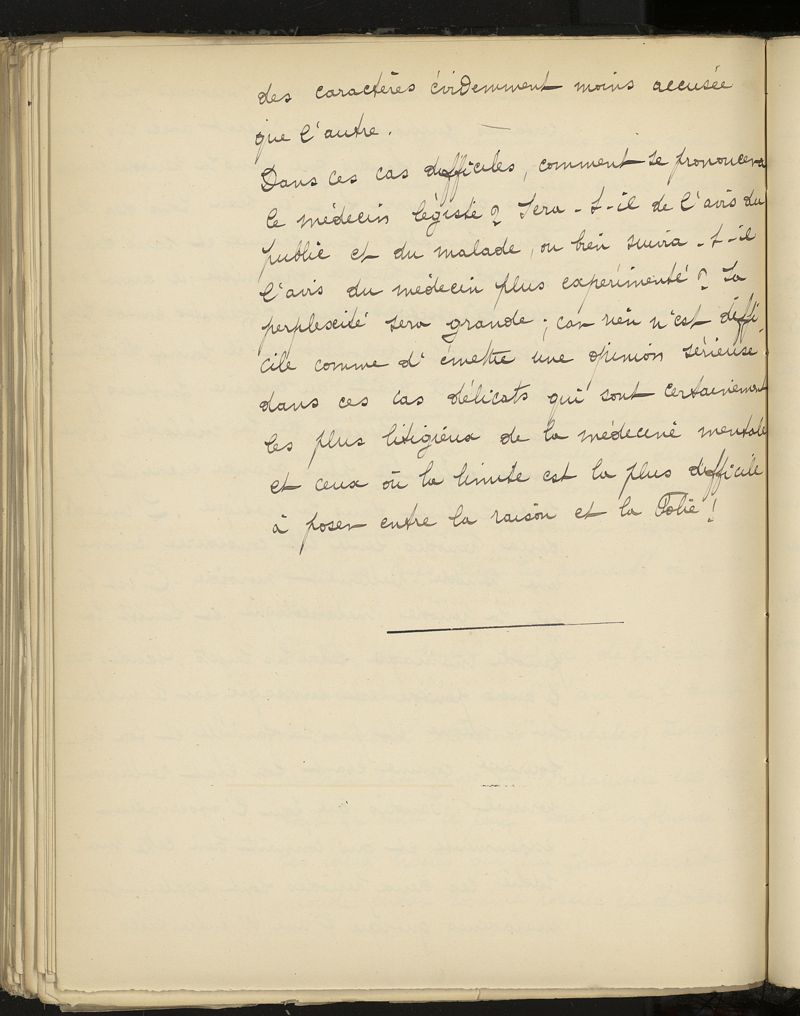 des caractères évidemment moins accusée
que l'autre.
Dans ces cas difficiles, comment se prononcera
le médecin légiste ? Sera-t-il de l'avis du
public et du malade, ou bien suivra-t-il
l'avis du médecin plus expérimenté ? Sa
perplexité sera grande ; car rien n'est diffi-
cile comme d'émettre une opinion sérieuse
dans ces cas délicats qui sont certainement
les plus litigieux de la médecine mentale
et ceux où la limite est la plus difficile
à poser entre la raison et la Folie !